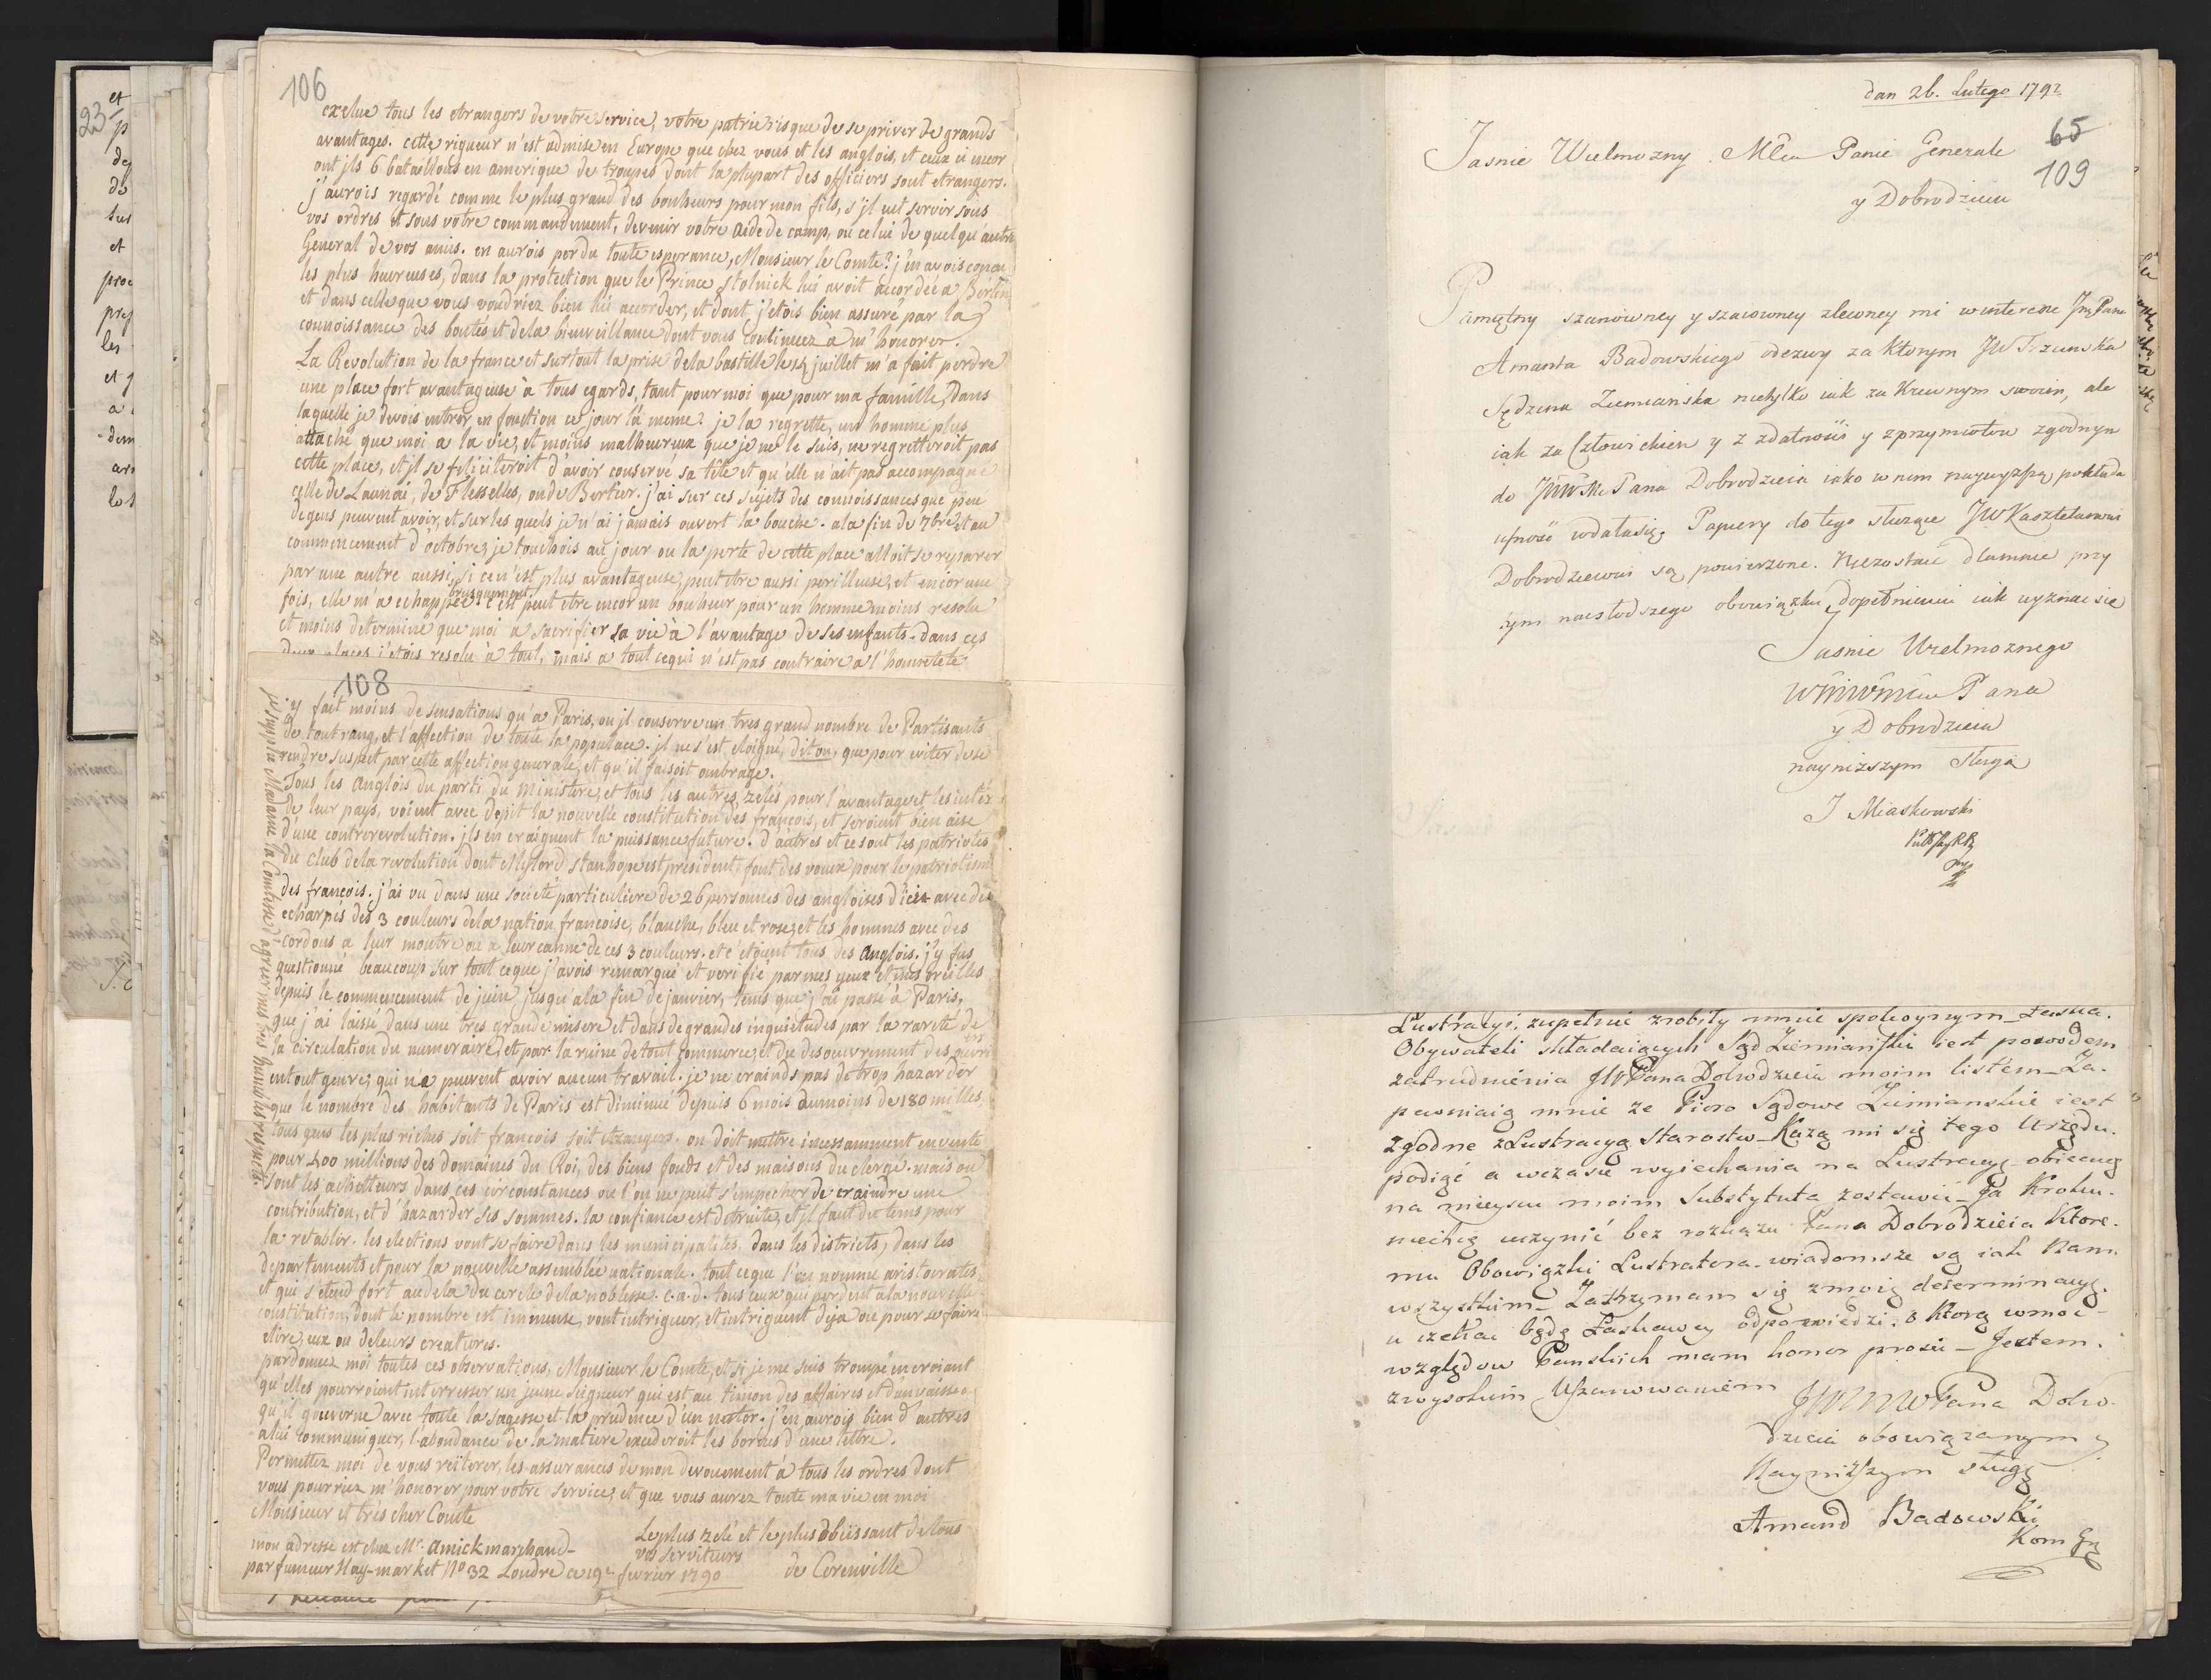 106
exclue tous les etrangers de votre service, votre patrie risque de se priver de grands
avantages. cette rigueur n'est admise en Europe que chez vous et les anglois, et ceux ci encor
ont jls 6 bataillons en amerique de troupes dont la plupart des officiers sont etrangers.
j'aurois regardé comme le plus grand des bonheurs pour mon fils, s'jl eut servir sous
vos ordres et sous votre commandement, devenir votre aide de camp, ou celui de quelqu'autre
General de vos amis. en aurois perdu toute esperance, Monsieur le Comte? j'en avois concu
les plus heureuses, dans la protection que le Prince Stolnick lui avoit accordée a Berlin
et dans celle que vous voudriez bien lui accorder, et dont j'etois bien assuré par la
connoissance des boutes et de la bienveillance dont vous continuez à m'honorer.
La Revolution de la france et surtout la prise de la bastille le 14 juillet m'a fait perdre
une place fort avantageuse à tous egards, tant pour moi que pour ma famille, dans
laquelle je devois entrer en fonction ce jour là meme. je la regrette, un homme plus
attaché que moi a la vie, et moins malheureux que je ne le suis, ne regretteroit pas
cette place, et jl se feliciteroit d'avoir conserve sa tête et qu'elle n'ait pas accompagné
celle de Launai, de Flesselles, ou de Bertier. j'ai sur ces sujets des connoissances que peu
de gens peuvent avoir, et sur les quels je n'ai jamais ouvert la bouche. a la fin de 7bre et au
commencement d'octobre, je touchois au jour ou la perte de cette place alloit se reparer
par une autre aussi, si ce n'est plus avantageuse, peut etre aussi perilleuse, et encor une
fois, elle m'a echappée brusquement. c'est peut etre encor un bonheur pour un homme moins resolu
et moins determiné que moi a sacrifier sa vie à l'avantage de ses enfants. dans ces
deux places j'etois resolu à tout, mais a tout ce qui n'est pas contraire a l'honneteté
108
jy fait moins de sensations qu'a Paris, ou jl conserve un tres grand nombre de Partisants
de tout rang, et l'affection de toute la populace. jl ne s'est eloigné, dit on, que pour eviter de se
rendre suspect par cette affection generale, et qu'il faisoit ombrage.
Tous les Anglois du parti du Ministere, et tous les autres, zelés pour l'avantage et les inter
de leur pays, voient avec depit la nouvelle constitution des francois, et seroient bien aise
d'une contrerevolution. jls en craignent la puissance future. d'autres et ce sont les patriotes
du Club de la revolution dont Mylord Stanhope est president, font des voeux pour le patriotism
des françois. j'ai vu dans une societé particuliere de 26 personnes des angloises d'ici avec des
echarpes des 3 couleurs de la nation francoise, blanche, bleu et rose, et les hommes avec des
cordons a leur montre ou a leur canne de ces 3 couleurs. et c'étoient tous des Anglois. j'y fus
questionné beaucoup sur tout ce que j'avois remarqué et verifié par mes yeux et mes oreilles
depuis le commencement de juin jusqu'a la fin de janvier, tems que j'ai passé à Paris,
que j'ai laissé dans une tres grande misere et dans de grandes inquietudes par la rareté de
la circulation du numeraire, et par la ruine de tout commerce, et du desouvrement des ouvri
en tout genre, qui ne peuvent avoir aucun travail. je ne crainds pas de trop hazarder
que le nombre des habitants de Paris est diminué depuis 6 mois dumoins de 180 milles,
tous gens les plus riches soit francois soit etrangers. on doit mettre incessamment en vente
pour 400 millions des domaines du Roi, des biens fonds et des maisons du clergé. mais ou
sont les achetteurs dans ces circonstances ou l'on ne peut s'empecher de craindre une
contribution, et d'hazarder ses sommes. la confiance est detruite, et jl faut du tems pour
la retablir. les elections vont se faire dans les municipalités, dans les districts, dans les
departements et pour la nouvelle assemblée nationale. tout ce que l'on nomme aristocrates
et qui s'etend fort au dela du cercle de la noblesse. c.a.d. tous ceux qui perdent a la nouvelle
constitution, dont le nombre est immense, vont intriguer, et intriguent deja ou pour se faire
elire, eux ou de leurs creatures.
pardonnez moi toutes ces observations, Monsieur le Comte, et si je me suis trompé en croiant
qu'elles pourroient interresser un jeune seigneur qui est au timon des affaires et d'un vaisseau
qu'il gouverne avec toute la sagesse et la prudence d'un nestor. j'en aurois bien d'autres
a lui communiquer, l'abondance de la matiere excederoit les bornes d'une lettre.
Permettez moi de vous reiterer, les assurances de mon devouement à tous les ordres dont
vous pourriez m'honorer pour votre service, et que vous aurez toute ma vie en moi
Monsieur et trés cher Comte
Le plus zelé et le plus obéissant de tous
vos serviteurs
de Corenville
mon adresse est chez Mr. Amick marchand-
parfumeur Hay-market No 32 Londre ce 19e fevrier 1790
je supplie Madame la Comtesse d'agreer mes tres humbles respects.
dan 26. Lutego 1792
65
109
Jasnie Wielmozny Mci Panie Generale
y Dobrodzieiu
Pamiętny szanowney y szacowney zlewney mi winteresie Jmp Pana
Amanta Badowskiego odezwy za ktorym JW Trzcinska
Sędzina Ziemianska nietylko iak za krewnym swoim, ale
iak za Człowiekiem y z zdatnosci y zprzymiotow zgodnym
do JWWMc Pana Dobrodzieia iako wnim naywyzszą pokłada
ufność udała się. Papiery do tego służące JW Kasztelanowi
Dobrodziewowi są powierzone. Niezostaie dlamnie przy
tym naisłodszego obowiązku dopełnieniu iak wyznac się
Jasnie Wielmoznego
WMWMc Pana
y Dobrodzieia
naynizszym Sługą
J Miaskowski
Lustracyi. zupełnie zrobiły mnie spokoynym Łaska.
Obywateli składaiących Sąd Ziemiański iest powodem
zatrudnienia JW Pana Dobrodzieia moim listem Za-
pewniaią mnie ze Pioro Sądowe Ziemianskie iest
zgodne z Lustracyą Starostw Każą mi się tego Urzędu.
podiąć a wczasie wyiechania na Lustracyą obiecuią
na mieyscu moim Substytuta zostawić Ja Kroku.
niechcę uczynić bez rozkazu Pana Dobrodzieia Ktore-
mu Obowiązki Lustratora wiadomsze są iak Nam
wszystkim Zatrzymam się zmoią determinacyą.
a czekac będę Łaskawey odpowiedzi. o Ktorą wmoc
względow Panskich mam honor prosić Jestem.
zwysokim Uszanowaniem
JWWMWPana Dobro-
dzieia obowiązanym y
Nayniższym sługą
Amand Badowski
Kom Gr